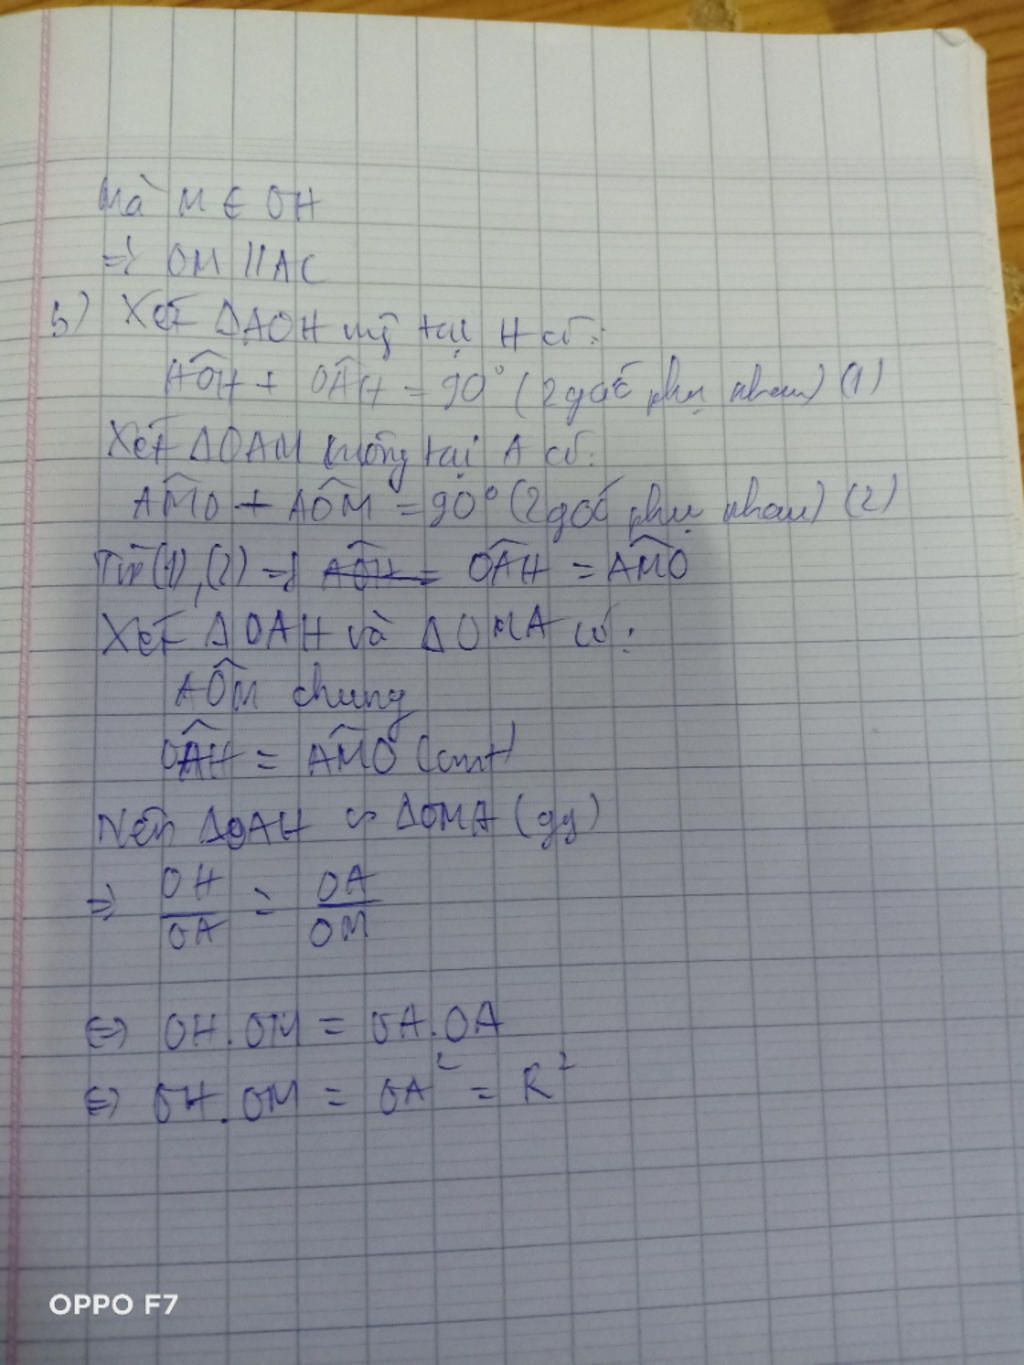 Mà M ∈ OH
=> OM // AC
b) Xét ΔAOH vg tại H có:
AÔH + OÂH = 90° (2 góc phụ nhau) (1)
Xét ΔOAM vuông tại A có:
AM̂O + AÔM = 90° (2 góc phụ nhau) (2)
Từ (1), (2) => AÔH = OÂH = AM̂O
Xét ΔOAH và ΔOMA có:
AÔM chung
OÂH = AM̂O (cmt)
Nên ΔOAH ∽ ΔOMA (gg)
=> OH/OA = OA/OM
<=> OH.OM = OA.OA
<=> OH.OM = OA² = R²
OPPO F7